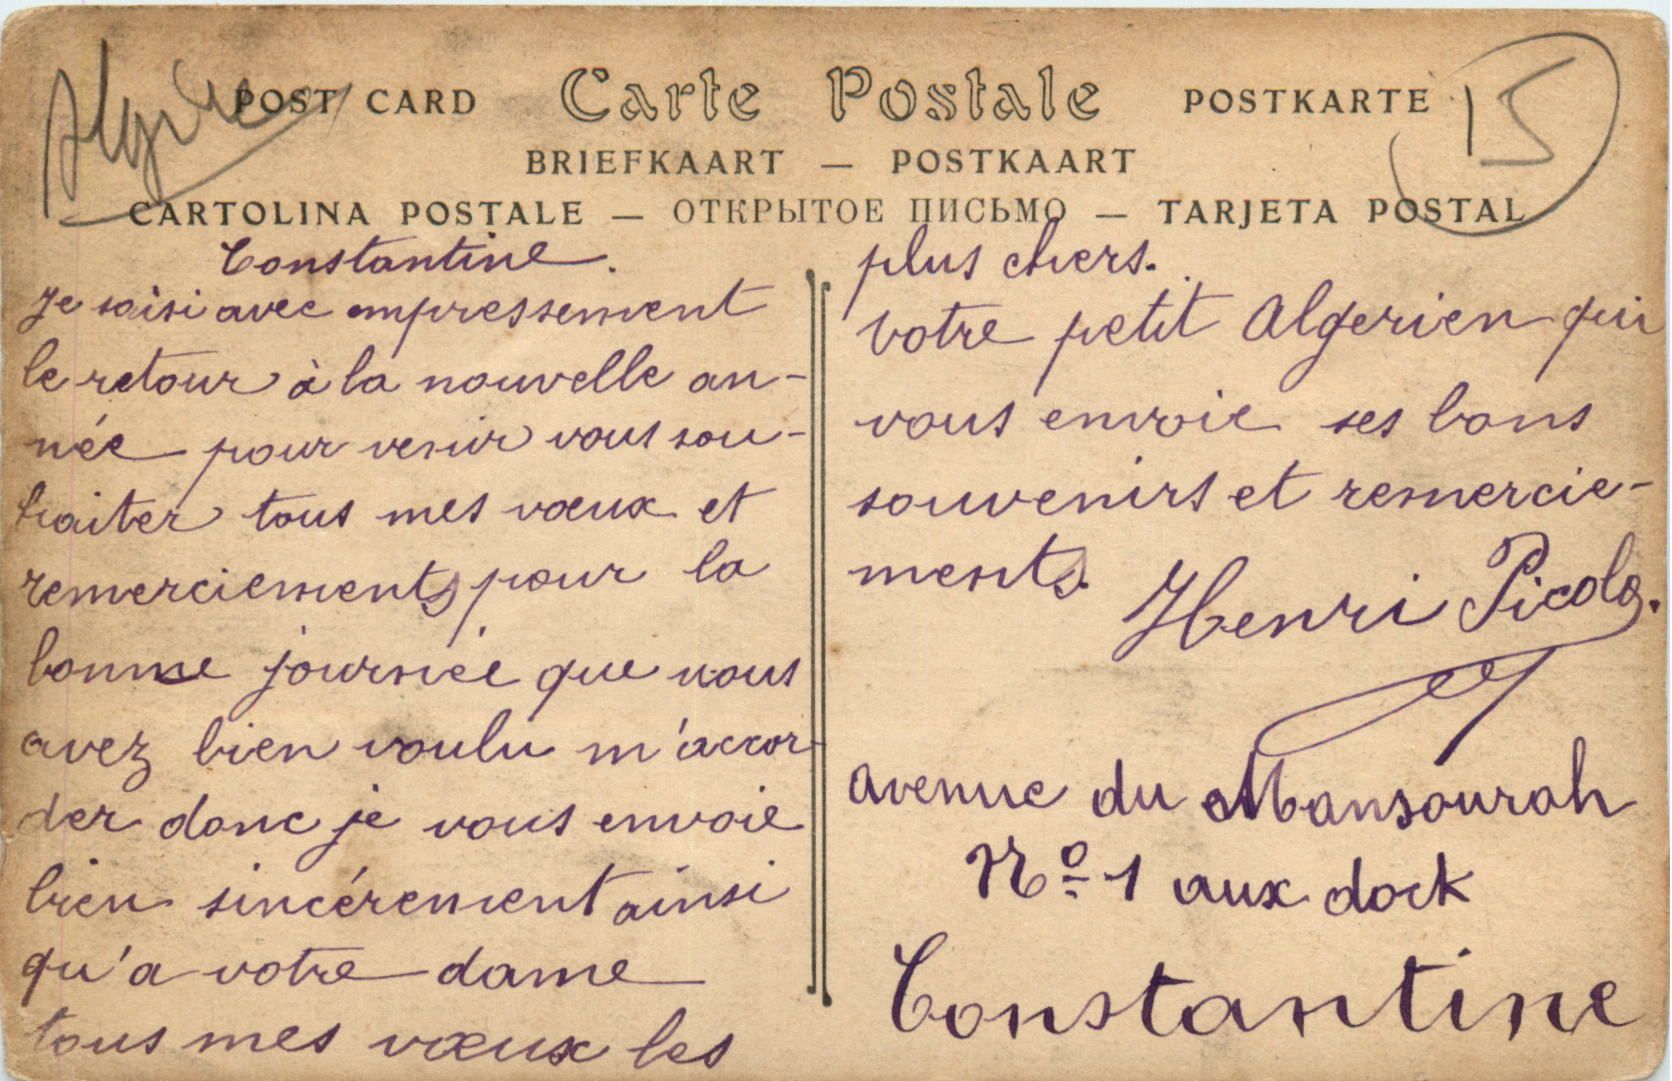 Algérie
15
POST CARD Carte Postale POSTKARTE
BRIEFKAART — POSTKAART
CARTOLINA POSTALE — ОТКРЫТОЕ ПИСЬМО — TARJETA POSTAL
Constantine.
Je saisi avec empressement
le retour à la nouvelle an-
née pour venir vous sou-
haiter tous mes vœux et
remerciements pour la
bonne journée que vous
avez bien voulu m'accor-
der donc je vous envoie
bien sincérement ainsi
qu'a votre dame
tous mes vœux les
plus chers.
Votre petit Algerien qui
vous envoie ses bons
souvenirs et remercie-
ments.
Henri Picolo.
avenue du Mansourah
Nº 1 aux dock
Constantine